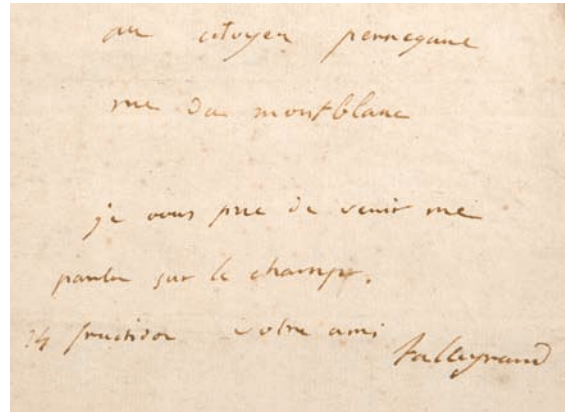 au citoyen perregaux
rue du montblanc
je vous prie de venir me
parler sur le champ.
24 fructidor votre ami
talleyrand